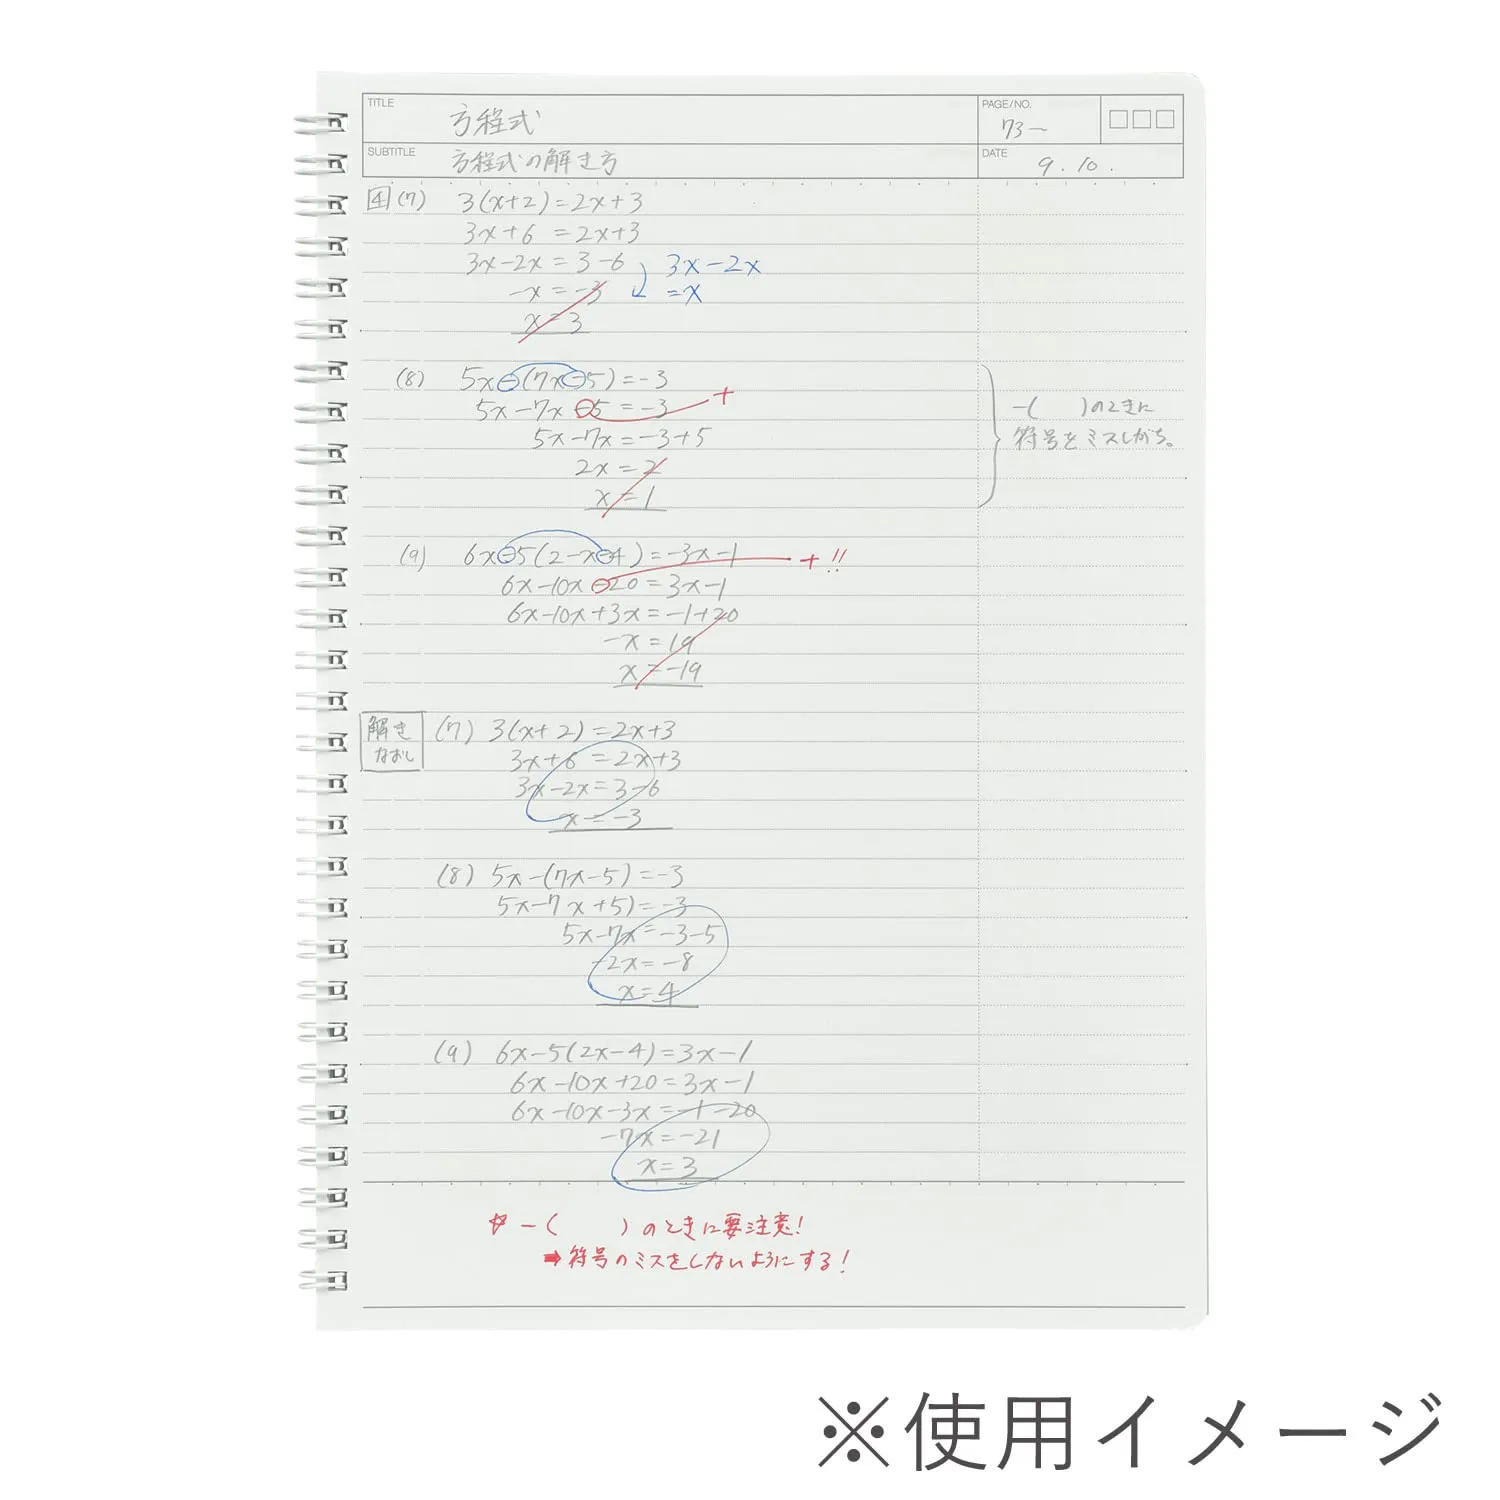 TITLE 方程式 PAGE/NO. 73〜
SUBTITLE 方程式の解き方 DATE 9.10.
4 (7) 3(x+2)=2x+3
3x+6 =2x+3
3x-2x=3-6 3x-2x
-x=-3 =x
x=3
(8) 5x-(7x-5)=-3
5x-7x-5=-3 +
5x-7x=-3+5
2x=2
x=1
-( )のときに
符号をミスしがち。
(9) 6x-5(2-x-4)=-3x-1
6x-10x-20=3x-1 +!!
6x-10x+3x=-1+20
-x=19
x=-19
解きなおし (7) 3(x+2)=2x+3
3x+6=2x+3
3x-2x=3-6
x=-3
(8) 5x-(7x-5)=-3
5x-7x+5)=-3
5x-7x=-3-5
-2x=-8
x=4
(9) 6x-5(2x-4)=3x-1
6x-10x+20=3x-1
6x-10x-3x=-1-20
-7x=-21
x=3
☆-( )のときに要注意!
➡符号のミスをしないようにする!
※使用イメージ